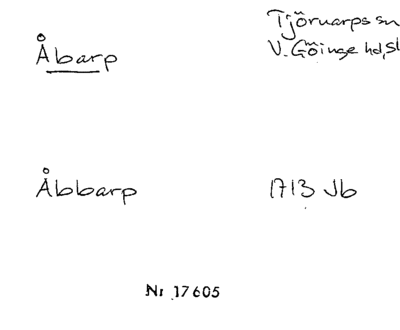 Tjörnarps sn
Åbarp
V. Göinge hd, Sk
Åbbarp 1713 Jb
Nr 17605